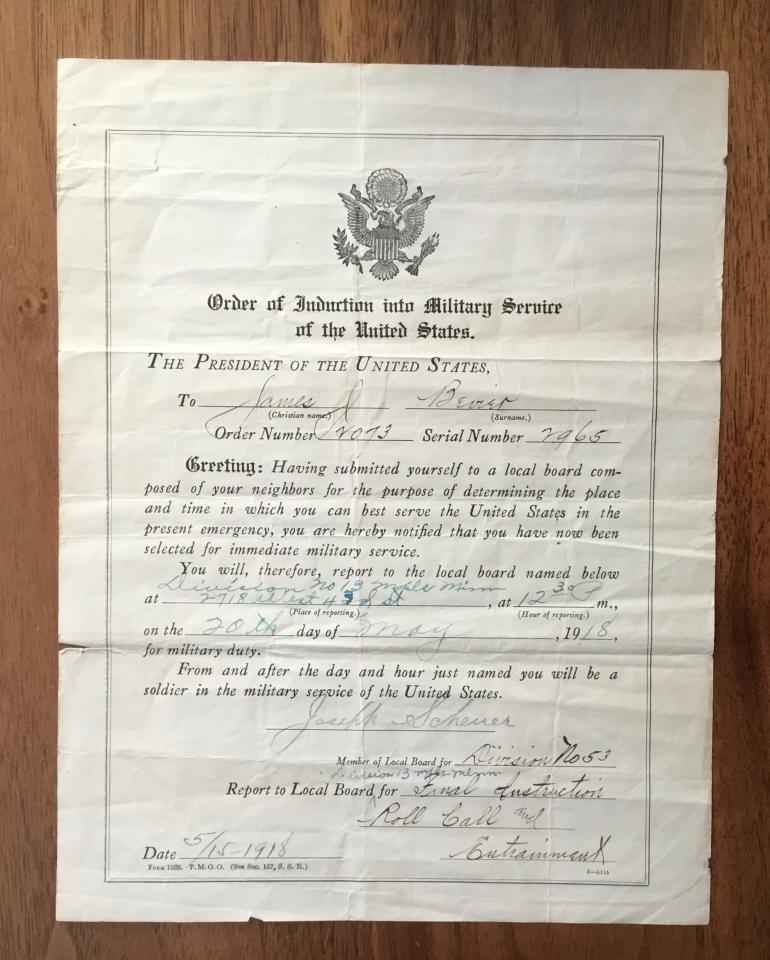 Order of Induction into Military Service
of the United States.
THE PRESIDENT OF THE UNITED STATES,
To James J Bevier
(Christian name.) (Surname.)
Order Number 12073 Serial Number 2965
Greeting: Having submitted yourself to a local board com-
posed of your neighbors for the purpose of determining the place
and time in which you can best serve the United States in the
present emergency, you are hereby notified that you have now been
selected for immediate military service.
You will, therefore, report to the local board named below
Division No 13 Mpls Minn
at 2718 West 43rd St, at 12 30 P m.,
(Place of reporting.) (Hour of reporting.)
on the 20th day of May, 1918,
for military duty.
From and after the day and hour just named you will be a
soldier in the military service of the United States.
Joseph Scheuer
Member of Local Board for Division No 53
Division 13 Mpls Minn
Report to Local Board for Final Instruction
Roll Call and
Date 5/15-1918 Entrainment
FORM 1028. P. M. G. O. (See Sec. 157, S. S. R.) 3—5115